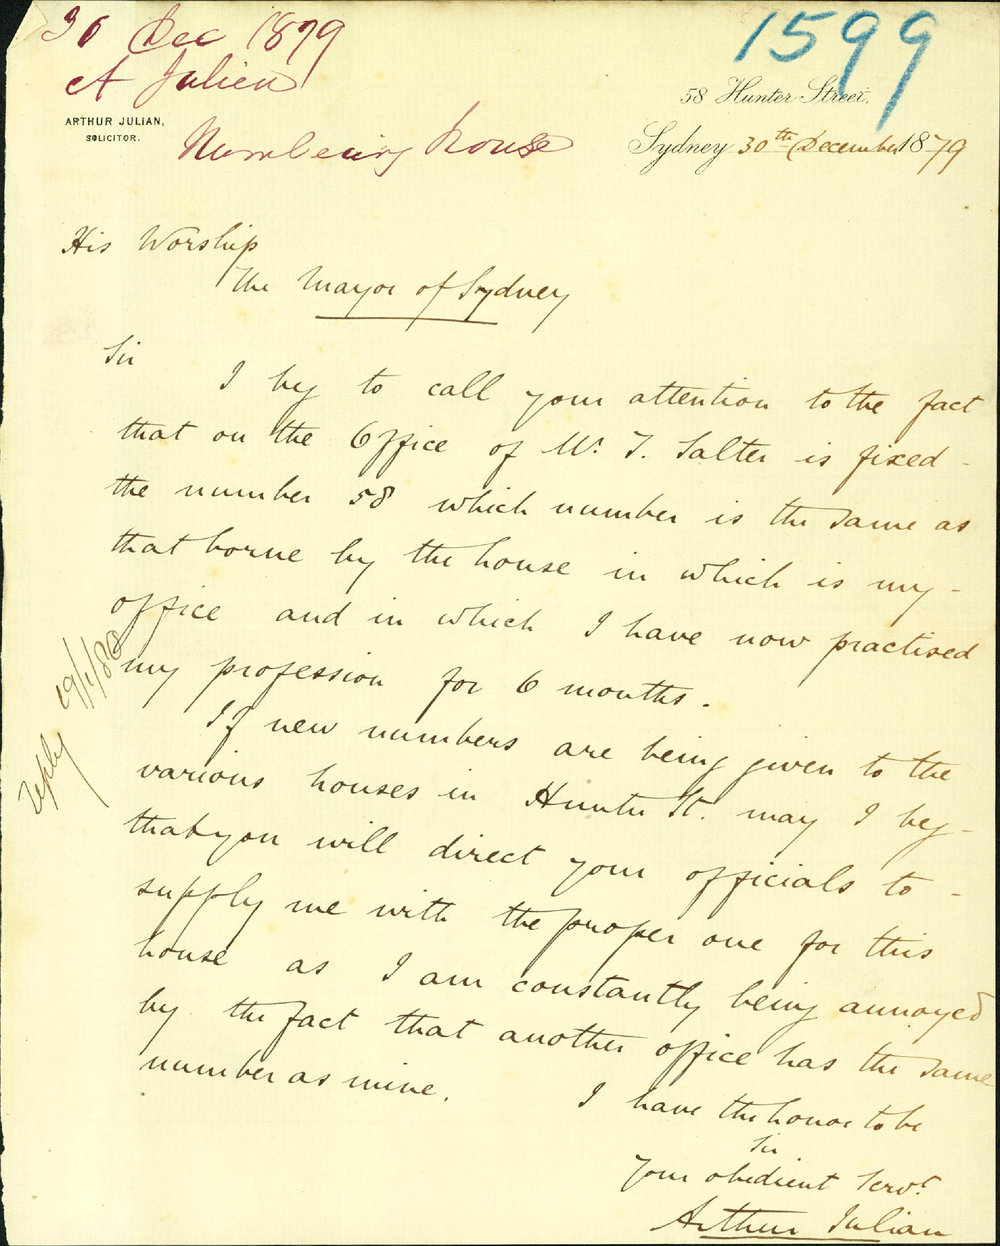 30 Dec 1879
A Julien
Numbering house
1599
ARTHUR JULIAN,
SOLICITOR.
58 Hunter Street.
Sydney 30th December 1879
His Worship
The Mayor of Sydney
Sir
I beg to call your attention to the fact
that on the Office of Mr. T. Salter is fixed -
the number 58 which number is the same as
that borne by the house in which is my -
office and in which I have now practised
my profession for 6 months.
If new numbers are being given to the
various houses in Hunter St. may I beg -
that you will direct your officials to -
supply me with the proper one for this
house as I am constantly being annoyed
by the fact that another office has the same
number as mine.
I have the honor to be
Sir
Your obedient Servt.
Arthur Julian
reply 19/1/80